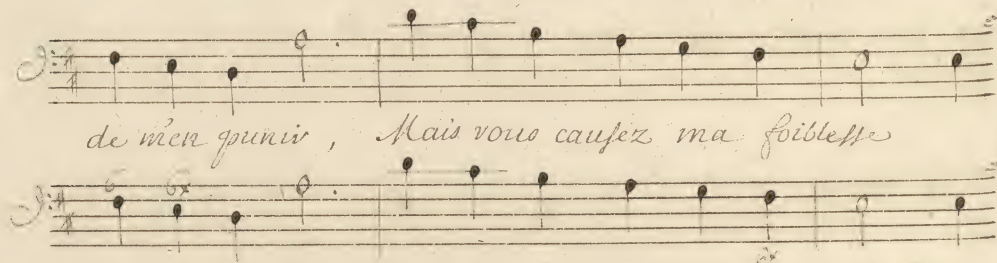 de m'en punir, Mais vous causez ma foiblesse
6 6x
6x